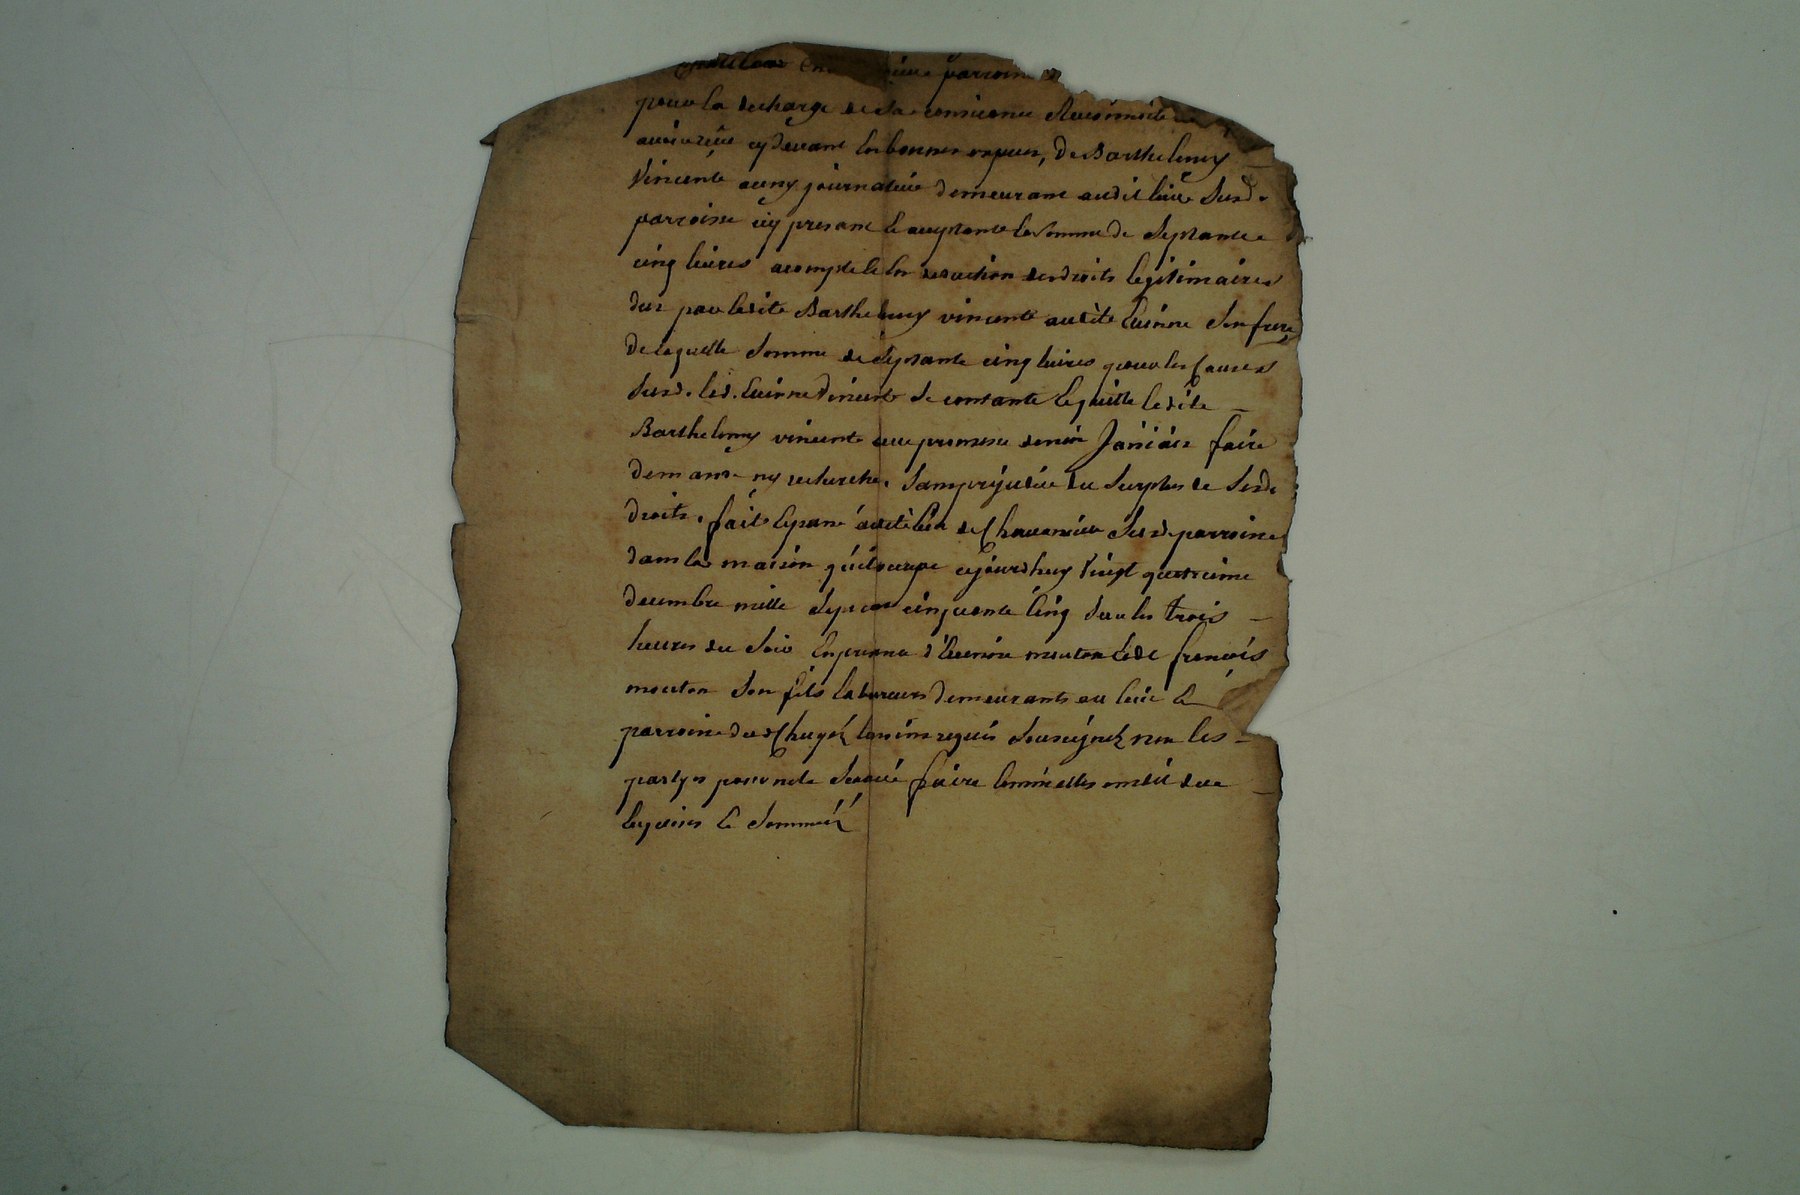 parroisse
pour la decharge de sa conscience Reconnoitre
avoir reçu cy devant en bonnes espèces, de Barthelemy
Vincent aussy journalier demeurant audit lieu Susd.
parroisse icy present et acceptant la Somme de Septante
cinq livres acompte et en deduction des droits legitimaires
dus par ledit Barthelemy vincent audit Etienne Son frere
de laquelle Somme de Septante cinq livres pour les Causes
Susd. led. Etienne Vincent Se contante et quitte ledit
Barthelemy vincent avec promesse de n'en Jamais faire
demande ny recherche, Sans préjudice du Surplus de Sesd.
droits. fait et passé audit lieu de Susd. parroisse
dans la maison qu'il occupe cejourdhuy Vingt quatrieme
decembre mille Sept cent cinquante Cinq Sur les trois
heures du Soir En presence d'Etienne mouton et de francois
mouton Son fils laboureurs demeurants au lieu et
parroisse de temoins requis Soussignés non les
partyes pour ne le Scavoir faire comme elles ont dit de ce
enquises et Sommés